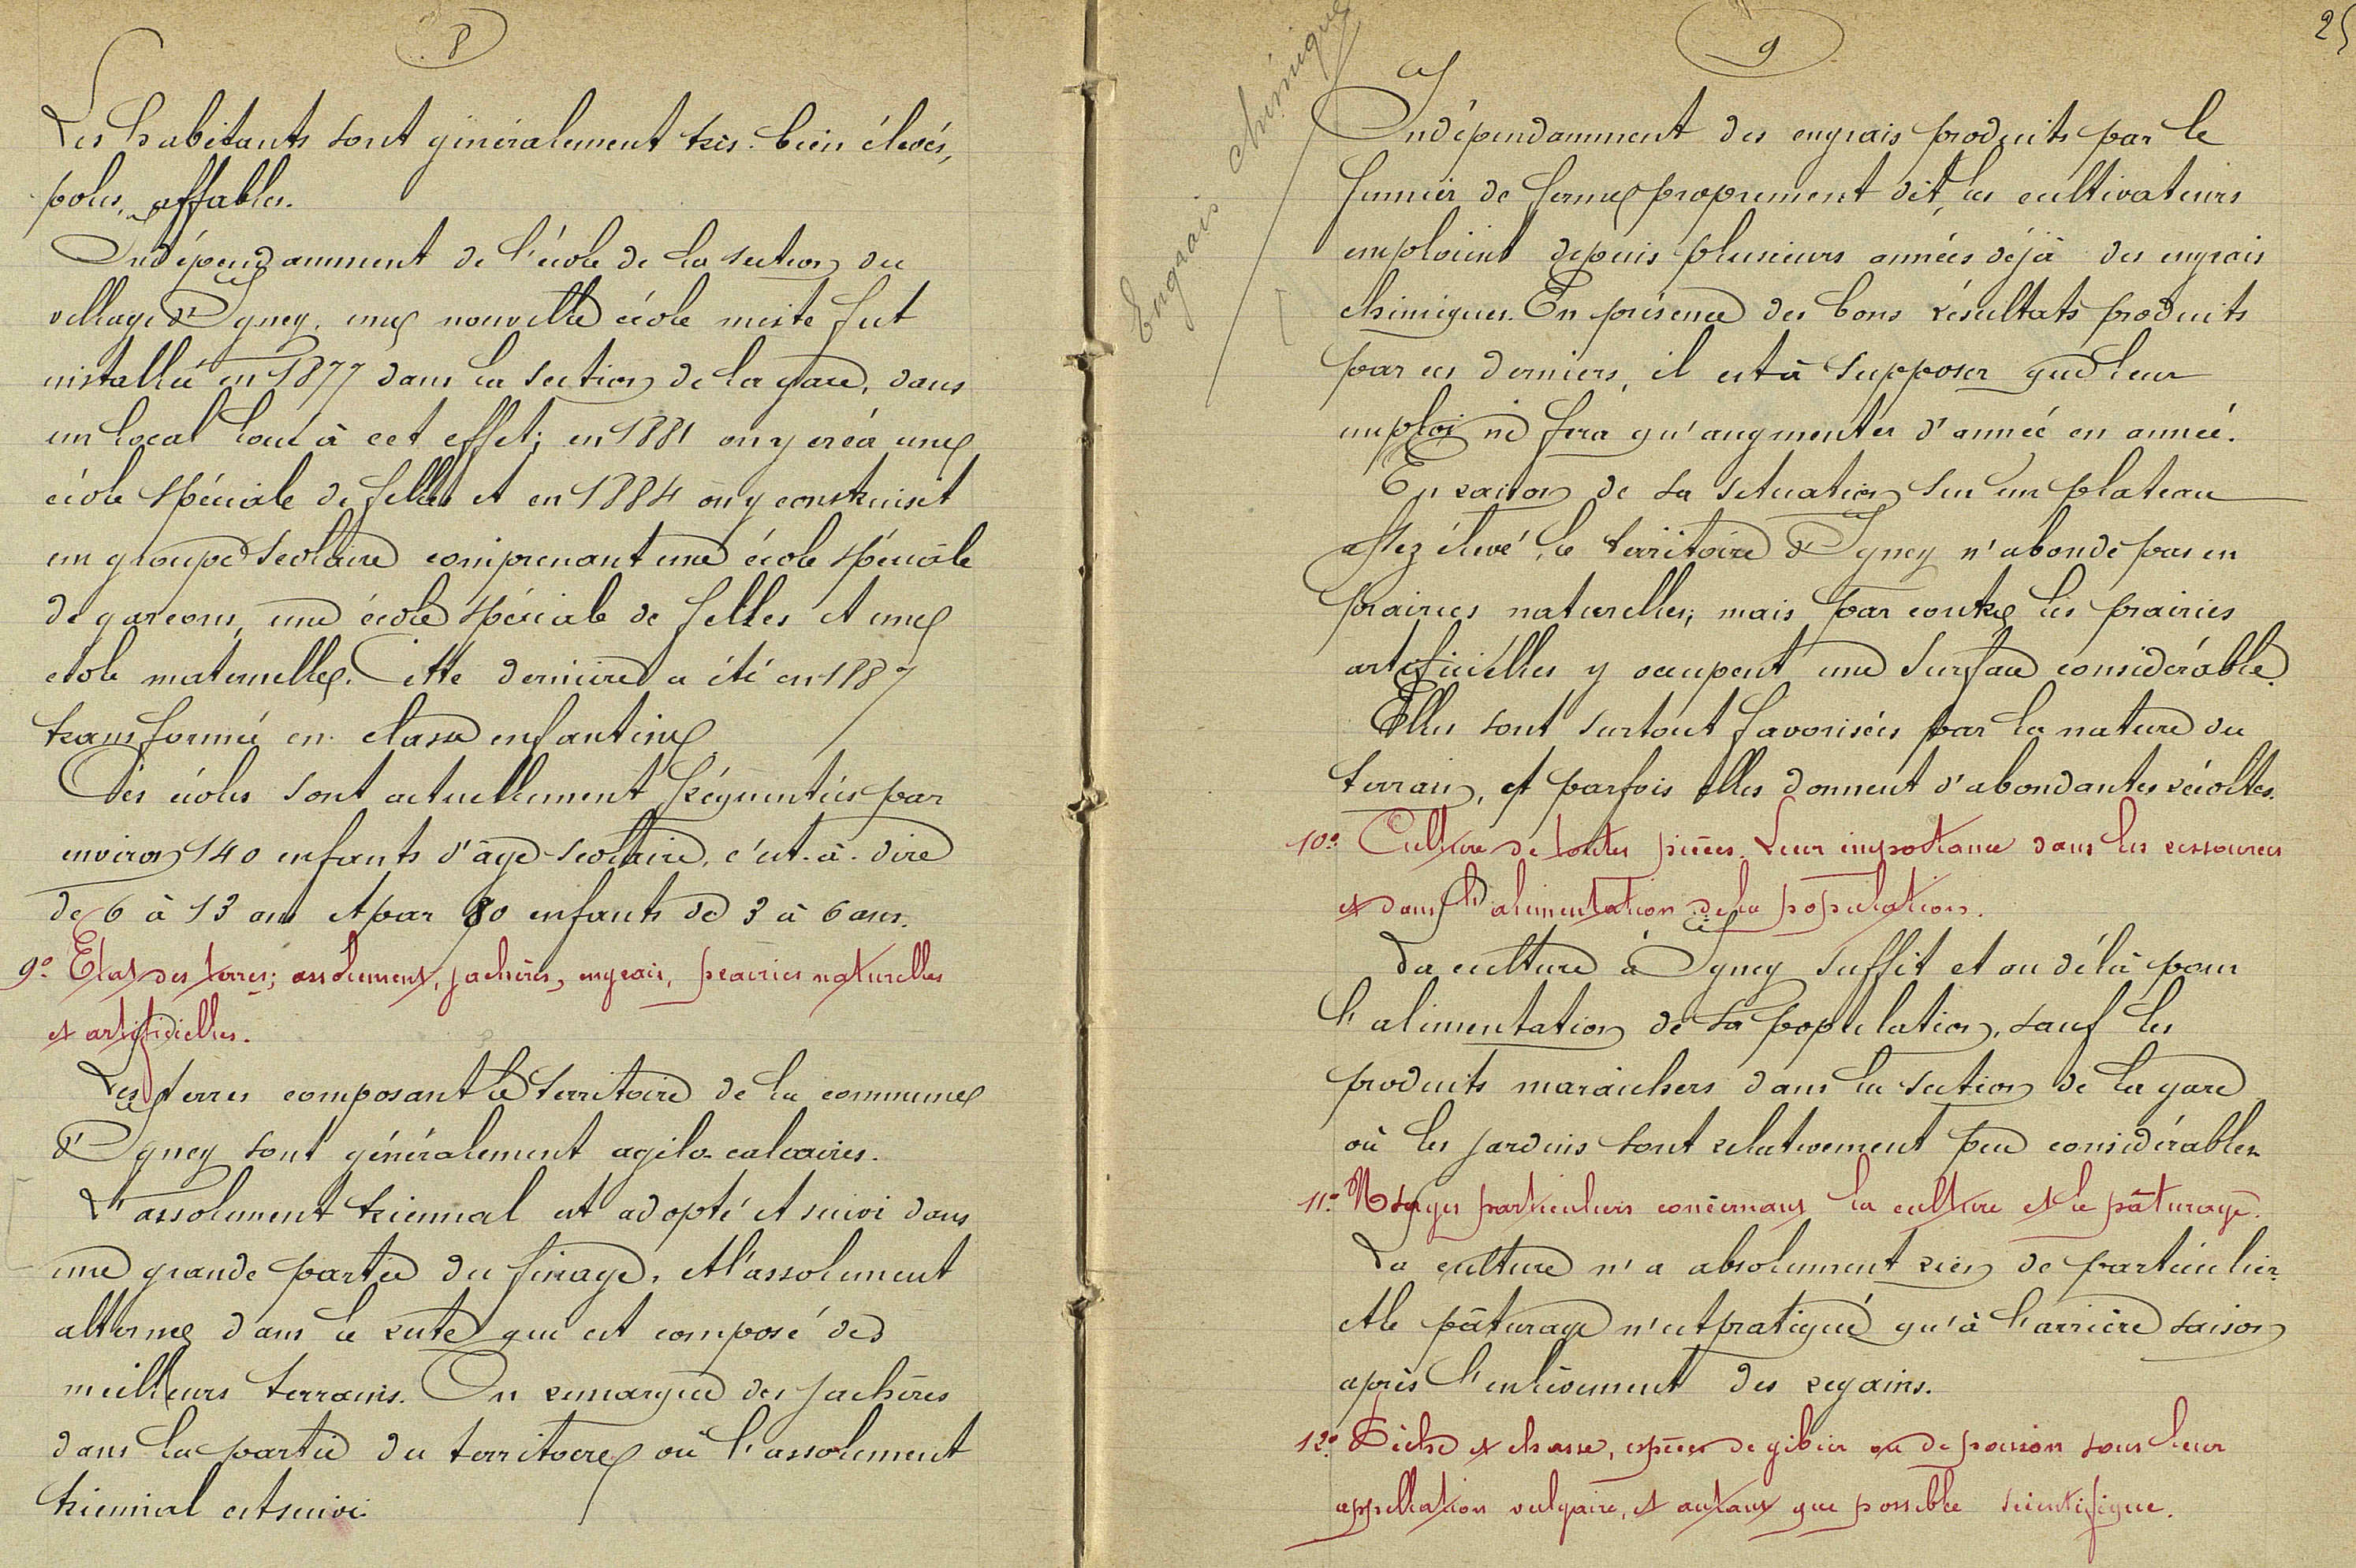 8
Les habitants sont généralement très bien élevés,
polis, affables.
Indépendamment de l'école de la section du
village d'Igney, une nouvelle école mixte fut
installée en 1877 dans la section de la gare, dans
un local loué à cet effet; en 1881 on y créa une
école spéciale de filles et en 1884 on y construisit
un groupe scolaire comprenant une école spéciale
de garçons, une école spéciale de filles et une
école maternelle. Cette dernière a été en 1887
transformée en classe enfantine
Ces écoles sont actuellement fréquentées par
environ 140 enfants d'âge scolaire, c'est-à-dire
de 6 à 13 ans et par 80 enfants de 3 à 6 ans.
9º Etat des terres; assolement, jachères, engrais, prairies naturelles
et artificielles.
Les terres composant le territoire de la commune
d'Igney sont généralement agilo-calcaires.
L'assolement triennal est adopté et suivi dans
une grande partie du finage, et l'assolement
alterne dans le reste qui est composé des
meilleurs terrains. On remarque des jachères
dans la partie du territoire où l'assolement
triennal est suivi.
9
25
Engrais chimique
Indépendamment des engrais produits par le
fumier de ferme proprement dit, les cultivateurs
emploient depuis plusieurs années déjà des engrais
chimiques. En présence des bons résultats produits
par ces derniers, il est à supposer que leur
emploi ne fera qu'augmenter d'année en année.
En raison de sa situation sur un plateau
assez élevé, le territoire d'Igney n'abonde pas en
prairies naturelles; mais par contre les prairies
artificielles y occupent une surface considérable.
Elles sont surtout favorisées par la nature du
terrain, et parfois elles donnent d'abondantes récoltes.
10º Culture de toutes pièces. Leur importance dans les ressources
et dans l'alimentation de la population.
La culture à Igney suffit et au délà pour
l'alimentation de sa population, sauf les
produits maraichers dans la section de la gare
où les jardins sont relativement peu considérables.
11º Usages particuliers concernant la culture et le pâturage.
La culture n'a absolument rien de particulier
et le pâturage n'est pratiqué qu'à l'arrière saison
après l'enlèvement des regains.
12º Pêche et chasse, espèces de gibier ou de poisson sous leur
appellation vulgaire, et autant que possible scientifique.